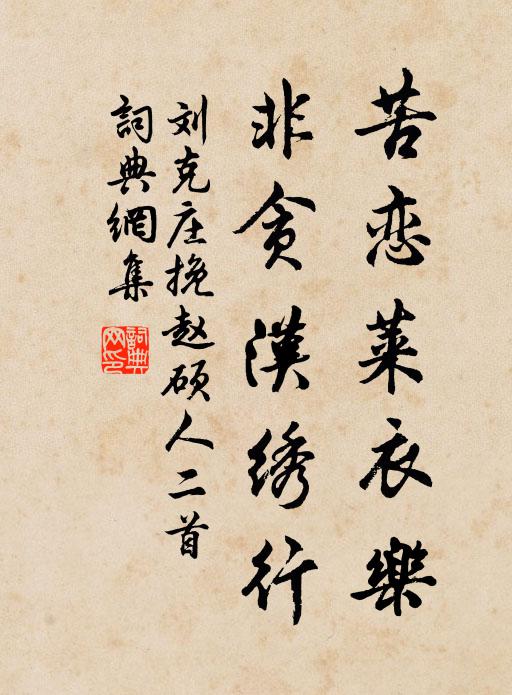 苦恋莱衣樂
非贪漢绣行
刘克庄挽赵硕人二首
詞典網集
詞典网印